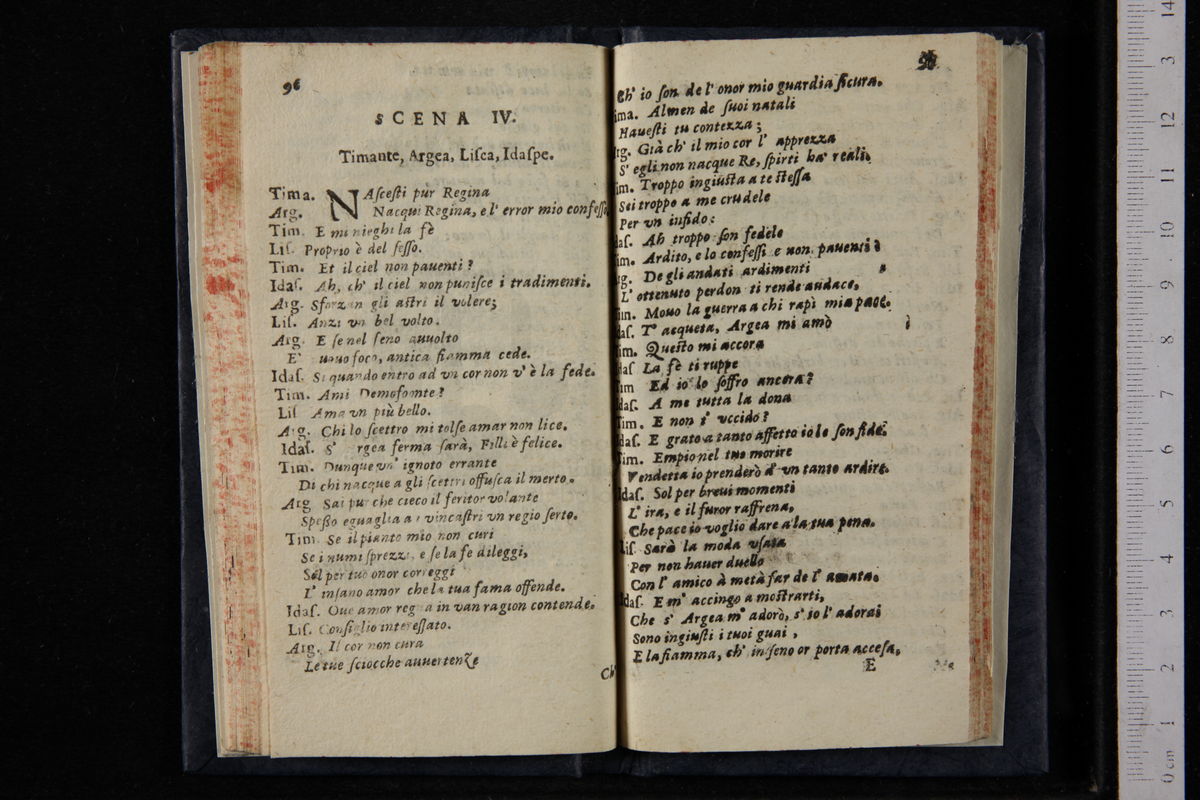 96
SCENA IV.
Timante, Argea, Liſca, Idaſpe.
Tima. NAſceſti pur Regina
Arg. Nacqui Regina, e l' error mio confeſſo
Tim. E mi nieghi la fè
Liſ. Proprio è del ſeſſo.
Tim. Et il ciel non pauenti?
Idaſ. Ah, ch' il ciel non puniſce i tradimenti.
Arg. Sforzan gli aſtri il volere;
Liſ. Anzi vn bel volto.
Arg. E ſe nel ſeno auuolto
E' nuouo foco, antica fiamma cede.
Idaſ. Si quando entro ad vn cor non v' è la fede.
Tim. Ami Demofoonte?
Liſ Ama vn più bello.
Arg. Chi lo ſcettro mi tolſe amar non lice.
Idaſ. S' Argea ferma ſarà, Filli è felice.
Tim. Dunque vn' ignoto errante
Di chi nacque a gli ſcettri offuſca il merto.
Arg Sai pur che cieco il feritor volante
Speßo eguaglia a i vincaſtri vn regio ſerto.
Tim. Se il pianto mio non curi
Se i numi ſprezzi, e ſe la fe dileggi,
Sol per tuo onor correggi
L' inſano amor che la tua fama offende.
Idaſ. Oue amor regna in van ragion contende.
Liſ. Conſiglio intereſſato.
Arg. Il cor non cura
Le tue ſciocche auuertenze
Ch'
Ch' io ſon de l' onor mio guardia ſicura.
ima. Almen de ſuoi natali
Haueſti tu contezza;
rg. Già ch' il mio cor l' apprezza
S' egli non nacque Re, ſpirti ha' reali.
im. Troppo ingiuſta a te ſteſſa
Sei troppo a me crudele
Per vn infido:
daſ. Ah troppo ſon fedele
im. Ardito, e lo confeſſi e non pauenti?
rg. De gli andati ardimenti
L' ottenuto perdon ti rende audace.
im. Mouo la guerra a chi rapì mia pace.
daſ. T' acqueta, Argea mi amò
im. Queſto mi accora
daſ La fè ti ruppe
im Ed io lo ſoffro ancora?
daſ. A me tutta la dona
Tim. E non t' uccido?
daſ. E grato a tanto affetto io le ſon fido.
Tim. Empio nel tuo morire
Vendetta io prenderò d' vn tanto ardire.
Idaſ. Sol per breui momenti
L' ira, e il furor raffrena,
Che pace io voglio dare a la tua pena.
Liſ. Sarà la moda vſata
Per non hauer duello
Con l' amico à metà far de l' amata.
Idaſ. E m' accingo a moſtrarti,
Che s' Argea m' adorò, s' io l' adorai
Sono ingiuſti i tuoi guai,
E la fiamma, ch' in ſeno or porta acceſa.
E